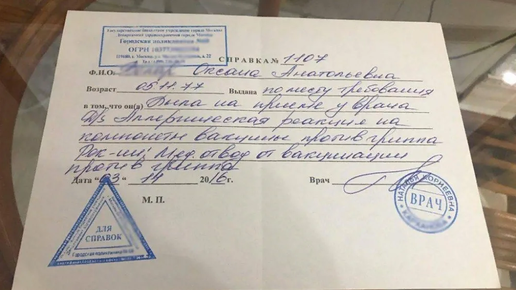 Государственное бюджетное учреждение города Москвы
Департамент здравоохранения города Москвы
Городская поликлиника
ОГРН
СПРАВКА № 1107
Ф.И.О. Оксана Анатольевна
Возраст 05.11.77 Выдана по месту требования
в том, что он(а) Была на приеме у врача
Ds Аллергическая реакция на
компоненты вакцины против гриппа
Рек-ии: Мед. отвод от вакцинации
против гриппа
Дата "03" 11 2016г. Врач
М. П.
ДЛЯ
СПРАВОК
ВРАЧ
НАТАЛЬЯ КОРНЕЕВНА